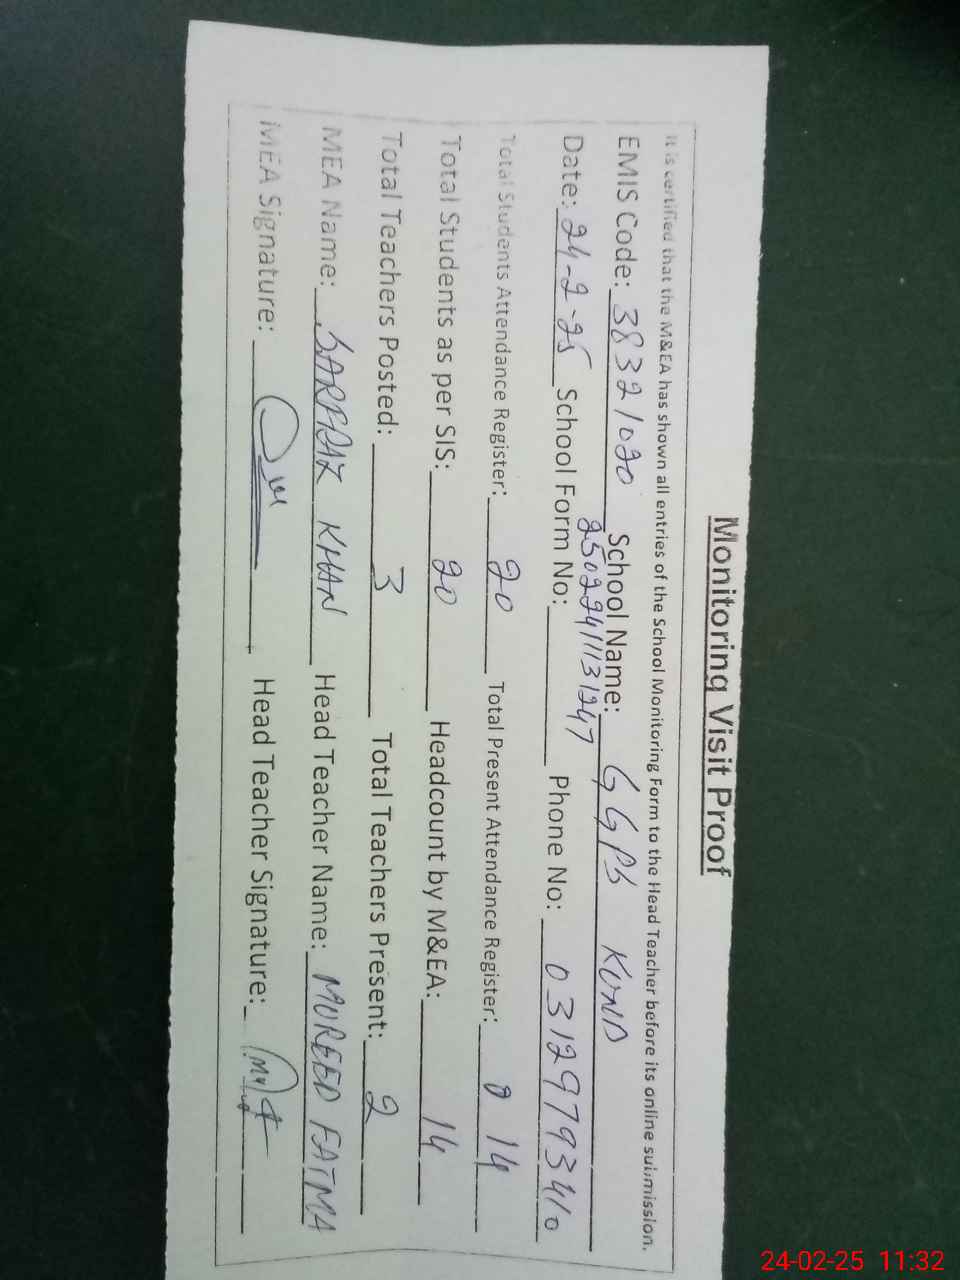 Monitoring Visit Proof
It is certified that the M&EA has shown all entries of the School Monitoring Form to the Head Teacher before its online submission.
EMIS Code: 38321020 School Name: GGPS KUND
25022411131247
Date: 24-2-25 School Form No: Phone No: 03129793410
Total Students Attendance Register: 20 Total Present Attendance Register: 14
Total Students as per SIS: 20 Headcount by M&EA: 14
Total Teachers Posted: 3 Total Teachers Present: 2
MEA Name: SARFRAZ KHAN Head Teacher Name: MUREED FATMA
MEA Signature: Head Teacher Signature:
24-02-25 11:32